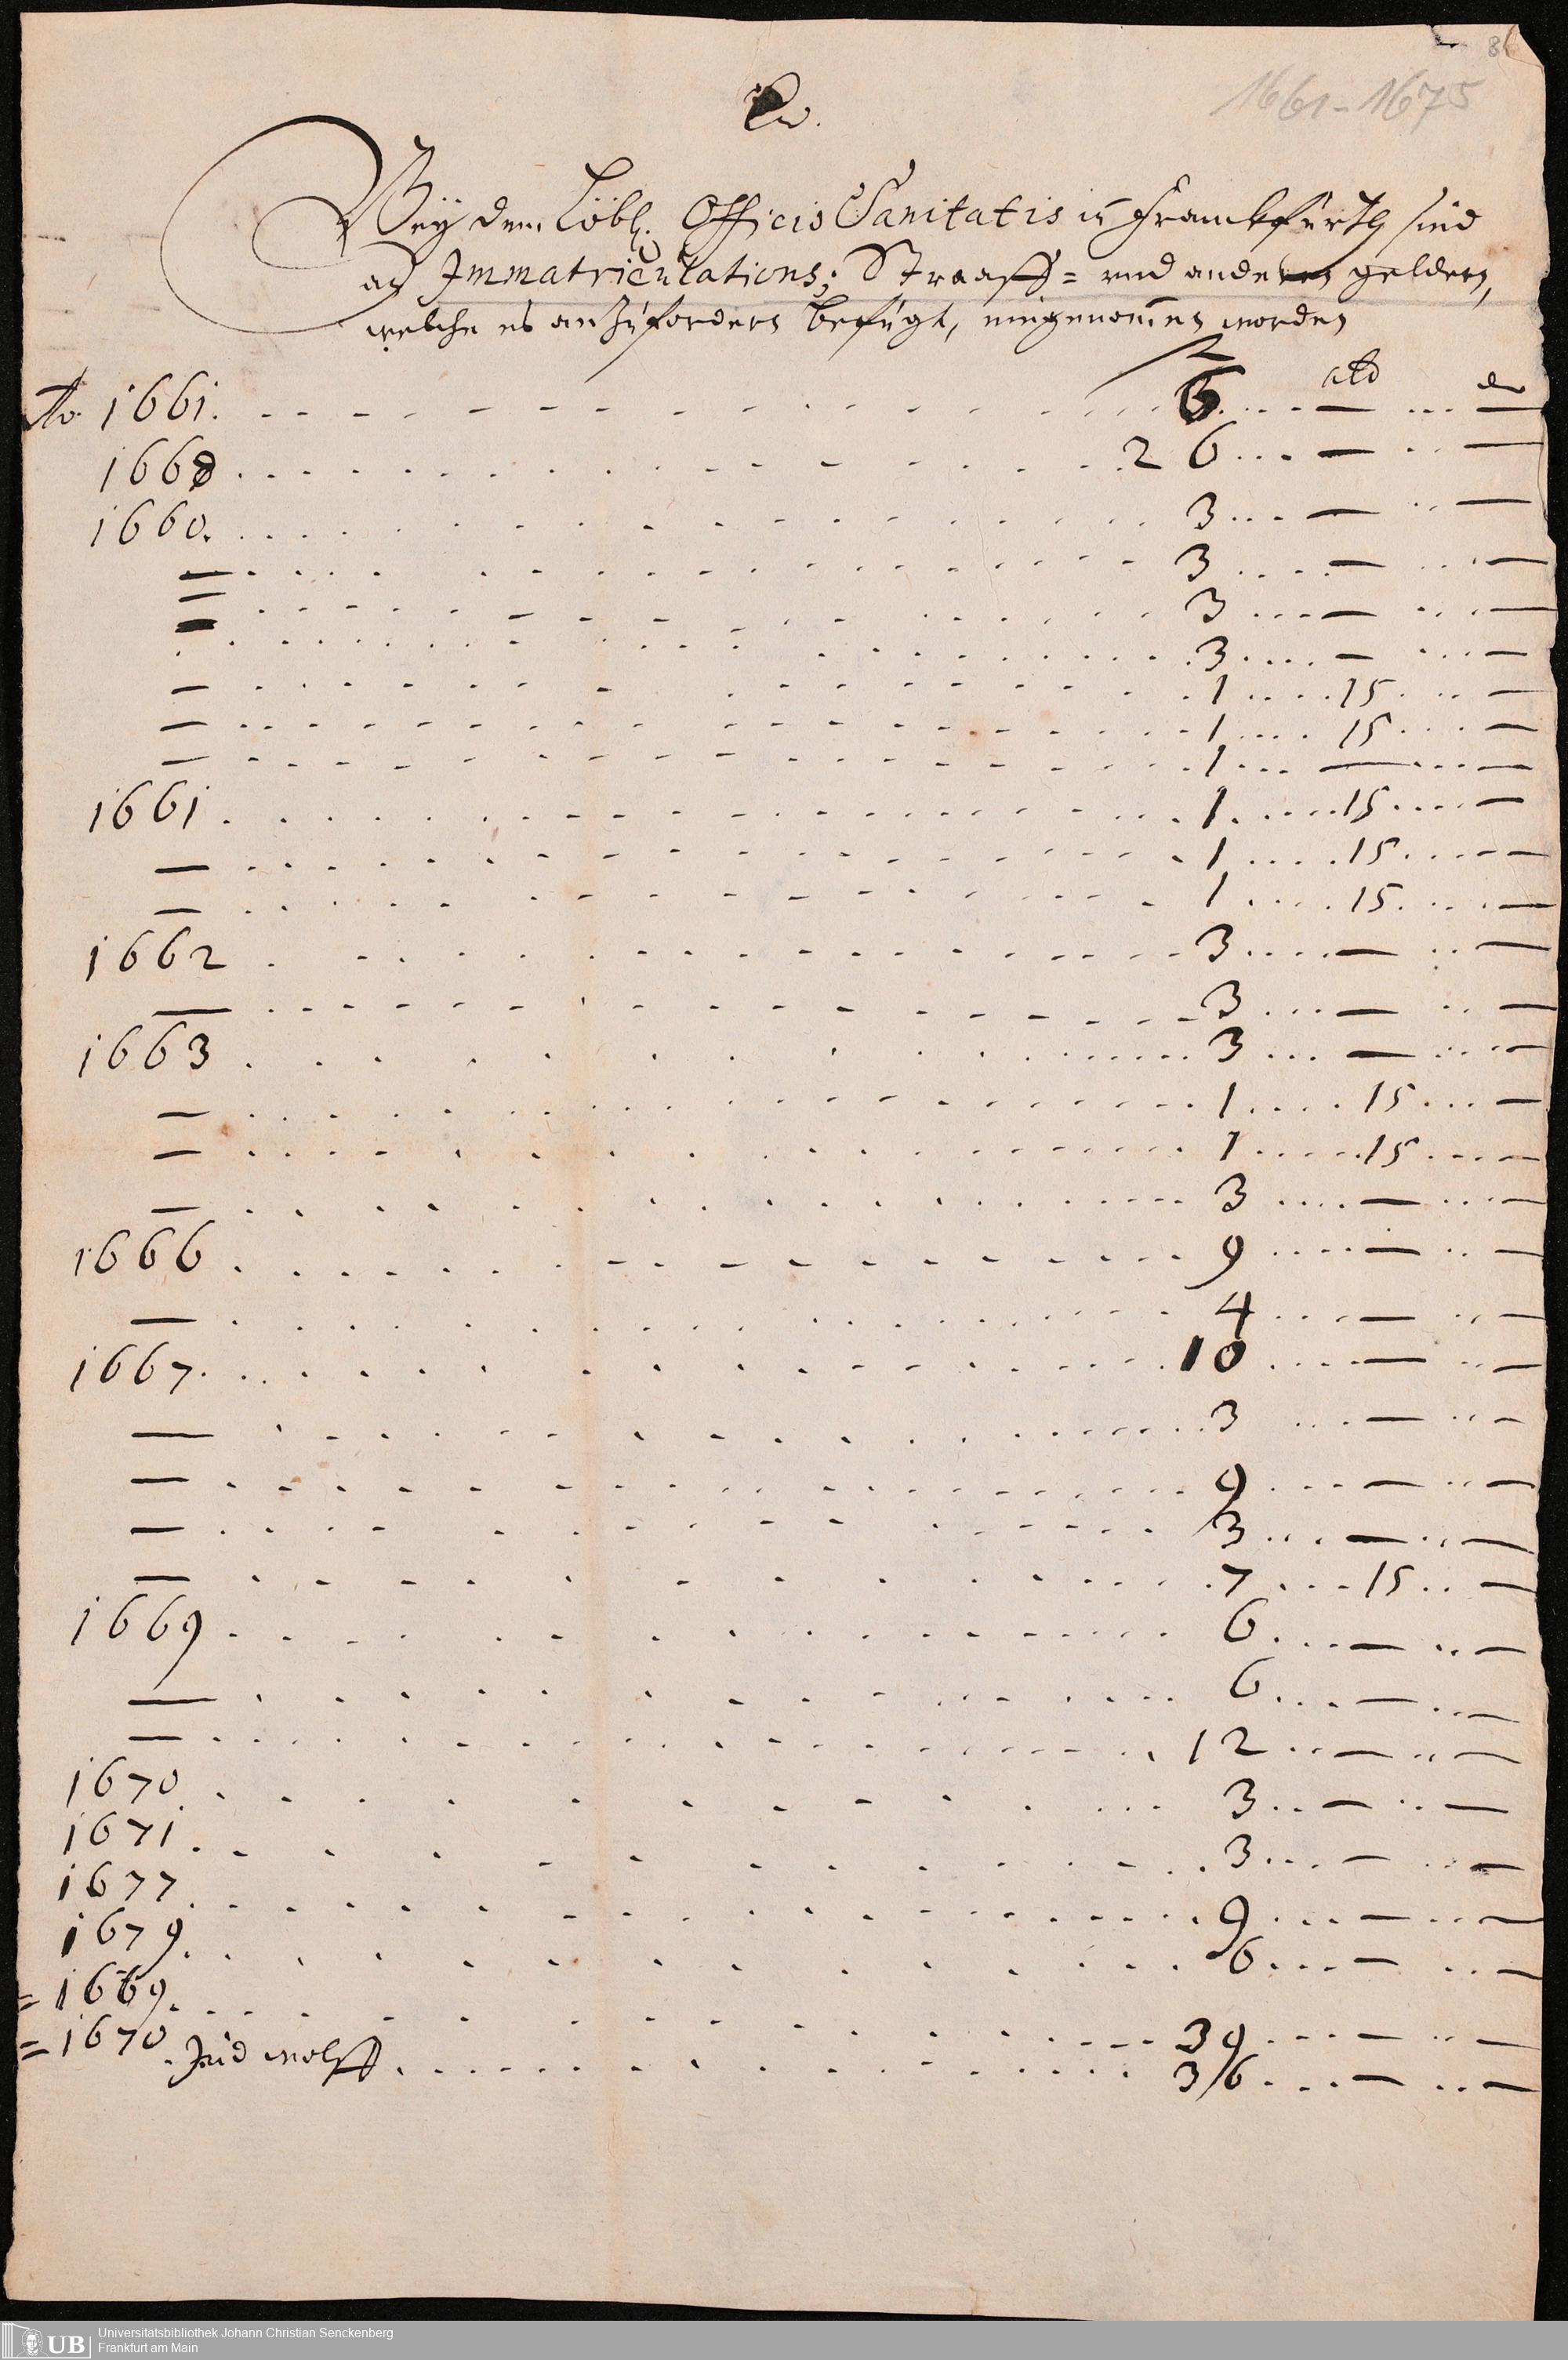 86
1661-1675
Bey dem Löbl. Officio Sanitatis in Franckfurth sind
an Immatriculations; Straaff= und anderen geldern,
welche es anzufordern befugt, eingenom̄en worden
fl
Ao. 1661. 6 — —
1668 26 — —
1660. 3 — —
— 3 — —
— 3 — —
— 3 — —
— 1 15 —
— 1 15 —
— 1 — —
1661. 1 15 —
— 1 15 —
— 1 15 —
1662 3 — —
— 3 — —
1663 3 — —
— 1 15 —
— 1 15 —
— 3 — —
1666 9 — —
— 4 — —
1667. 10 — —
— 3 — —
— 9 — —
— 3 — —
— 7 15 —
1669 6 — —
— 6 — —
— 12 — —
1670 3 — —
1671 3 — —
1677 9 — —
1679 6 — —
= 1669. 39 — —
= 1670. Jud Wolff 36 — —
UB Universitätsbibliothek Johann Christian Senckenberg
Frankfurt am Main